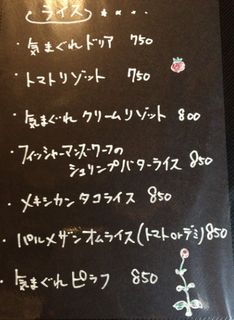 ライス
・気まぐれドリア 750
・トマトリゾット 750
・気まぐれクリームリゾット 800
・フィッシャーマンズワーフの
シュリンプバターライス 850
・メキシカンタコライス 850
・パルメザンオムライス(トマトorデミ)850
・気まぐれピラフ 850